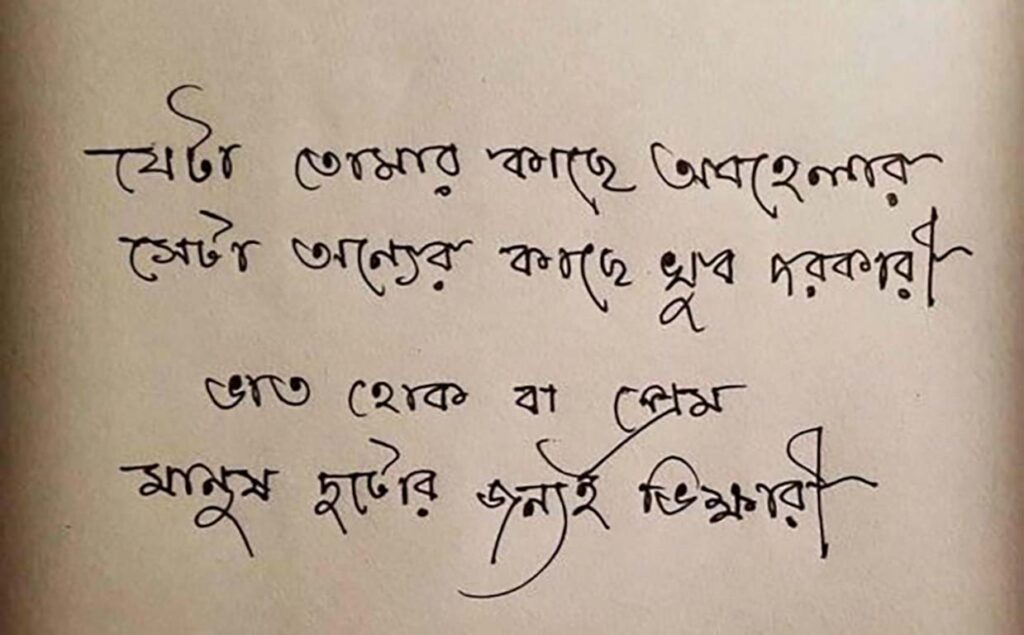 যেটা তোমার কাছে অবহেলার
সেটা অন্যের কাছে খুব দরকারী
ভাত হোক বা প্রেম
মানুষ দুটোর জন্যই ভিক্ষারী